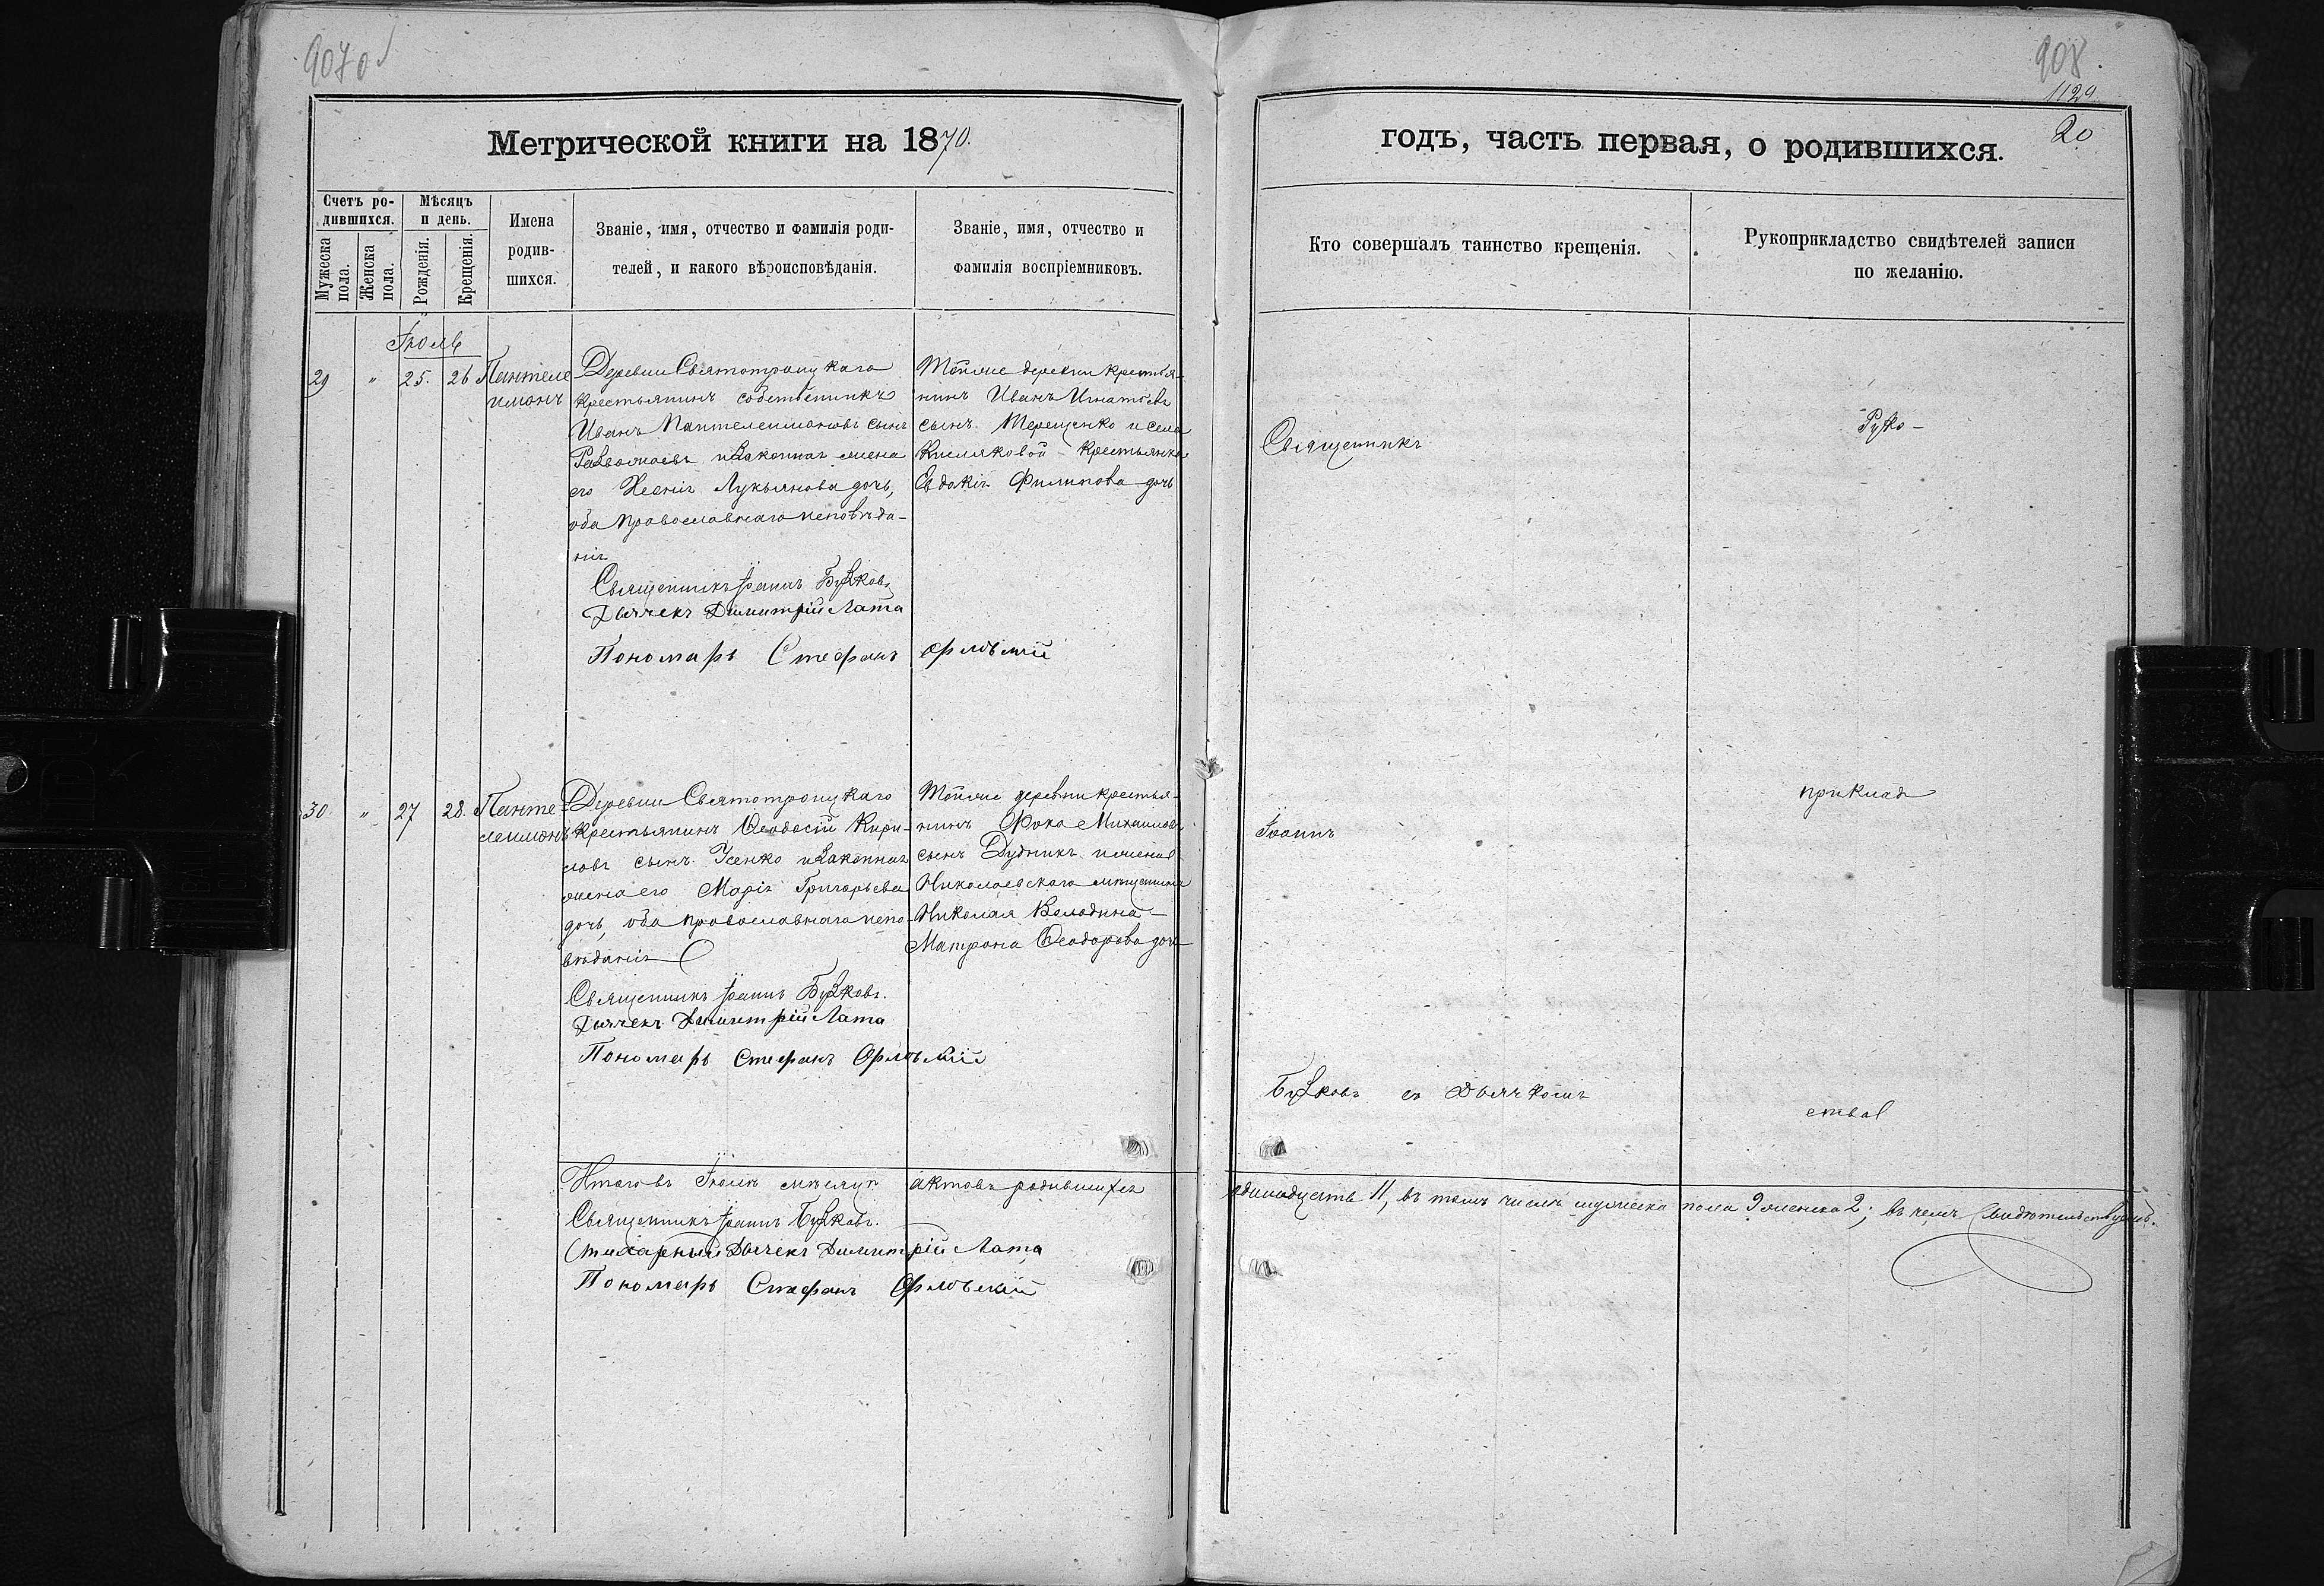 9070
908
1129
20
Метрической книги на 1870.
годъ, часть первая, о родившихся.
Счетъ ро-
дившихся.
Мужеска
пола.
Женска
пола.
Мѣсяцъ
и день.
Рожденія.
Крещенія.
Имена
родив-
шихся.
Званіе, имя, отчество и фамилія роди-
телей, и какого вѣроисповѣданія.
Званіе, имя, отчество и
фамилія воспріемниковъ.
Кто совершалъ таинство крещенія.
Рукоприкладство свидѣтелей записи
по желанію.
Іюль
29 " 25. 26 Пантеле
имонъ
Деревни Святотроицкаго
крестьянинъ собственникъ
Иванъ Пантелеимоновъ сынъ
и законная жена
его Ксенія Лукьянова дочь,
оба православнаго исповѣда-
нія
Священникъ Іоаннъ Бузковъ
Дьячекъ Димитрій Лата
Пономарь Стефанъ Орловскій
Тойже деревни крестья-
нинъ Иванъ Игнатьевъ
сынъ Терещенко и села
Кисляковой крестьянка
Евдокія Филипова дочь
Священникъ
Руко-
30. " 27 28. Панте
леимонъ
Деревни Святотроицкаго
крестьянинъ Ѳеодосій Кири-
ловъ сынъ Усенко и законная
жена его Марія Григорьева
дочь, оба православнаго испо-
вѣданія
Священникъ Іоаннъ Бузковъ.
Дьячекъ Димитрій Лата
Пономарь Стефанъ Орловскій
Тойже деревни крестья-
нинъ Фока Михаиловъ
сынъ Дудникъ и жена
Николаевскаго мѣщанина
Николая Володина
Матрона Ѳеодорова дочь
Іоаннъ
приклад
Бузковъ съ дьячкомъ
ства
Итого въ Іюлѣ мѣсяцѣ актовъ родившихся одинадцать 11, въ томъ числѣ мужеска пола 9 женска 2; въ чемъ свидѣтельствуемъ.
Священникъ Іоаннъ Бузковъ.
Стихарный Дьячекъ Димитрій Лата
Пономарь Стефанъ Орловскій